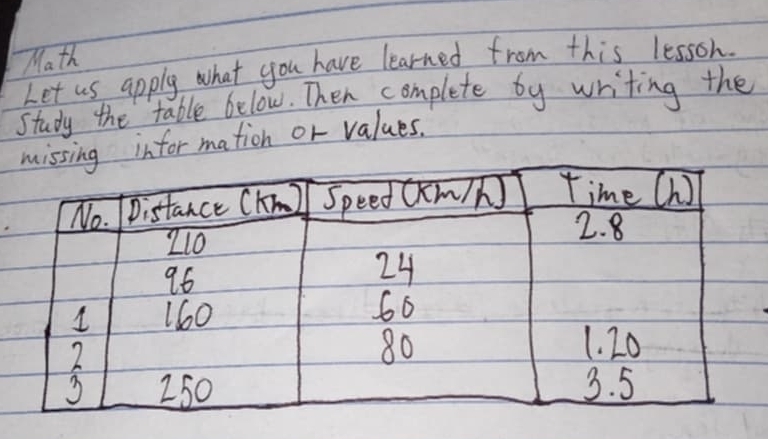 Math
Let us apply what you have learned from this lesson.
Study the table below. Then complete by writing the
missing information or values.
No. Distance (Km) Speed (Km/h) Time (h)
210 2.8
96 24
1 160 60
2 80 1.20
3 250 3.5